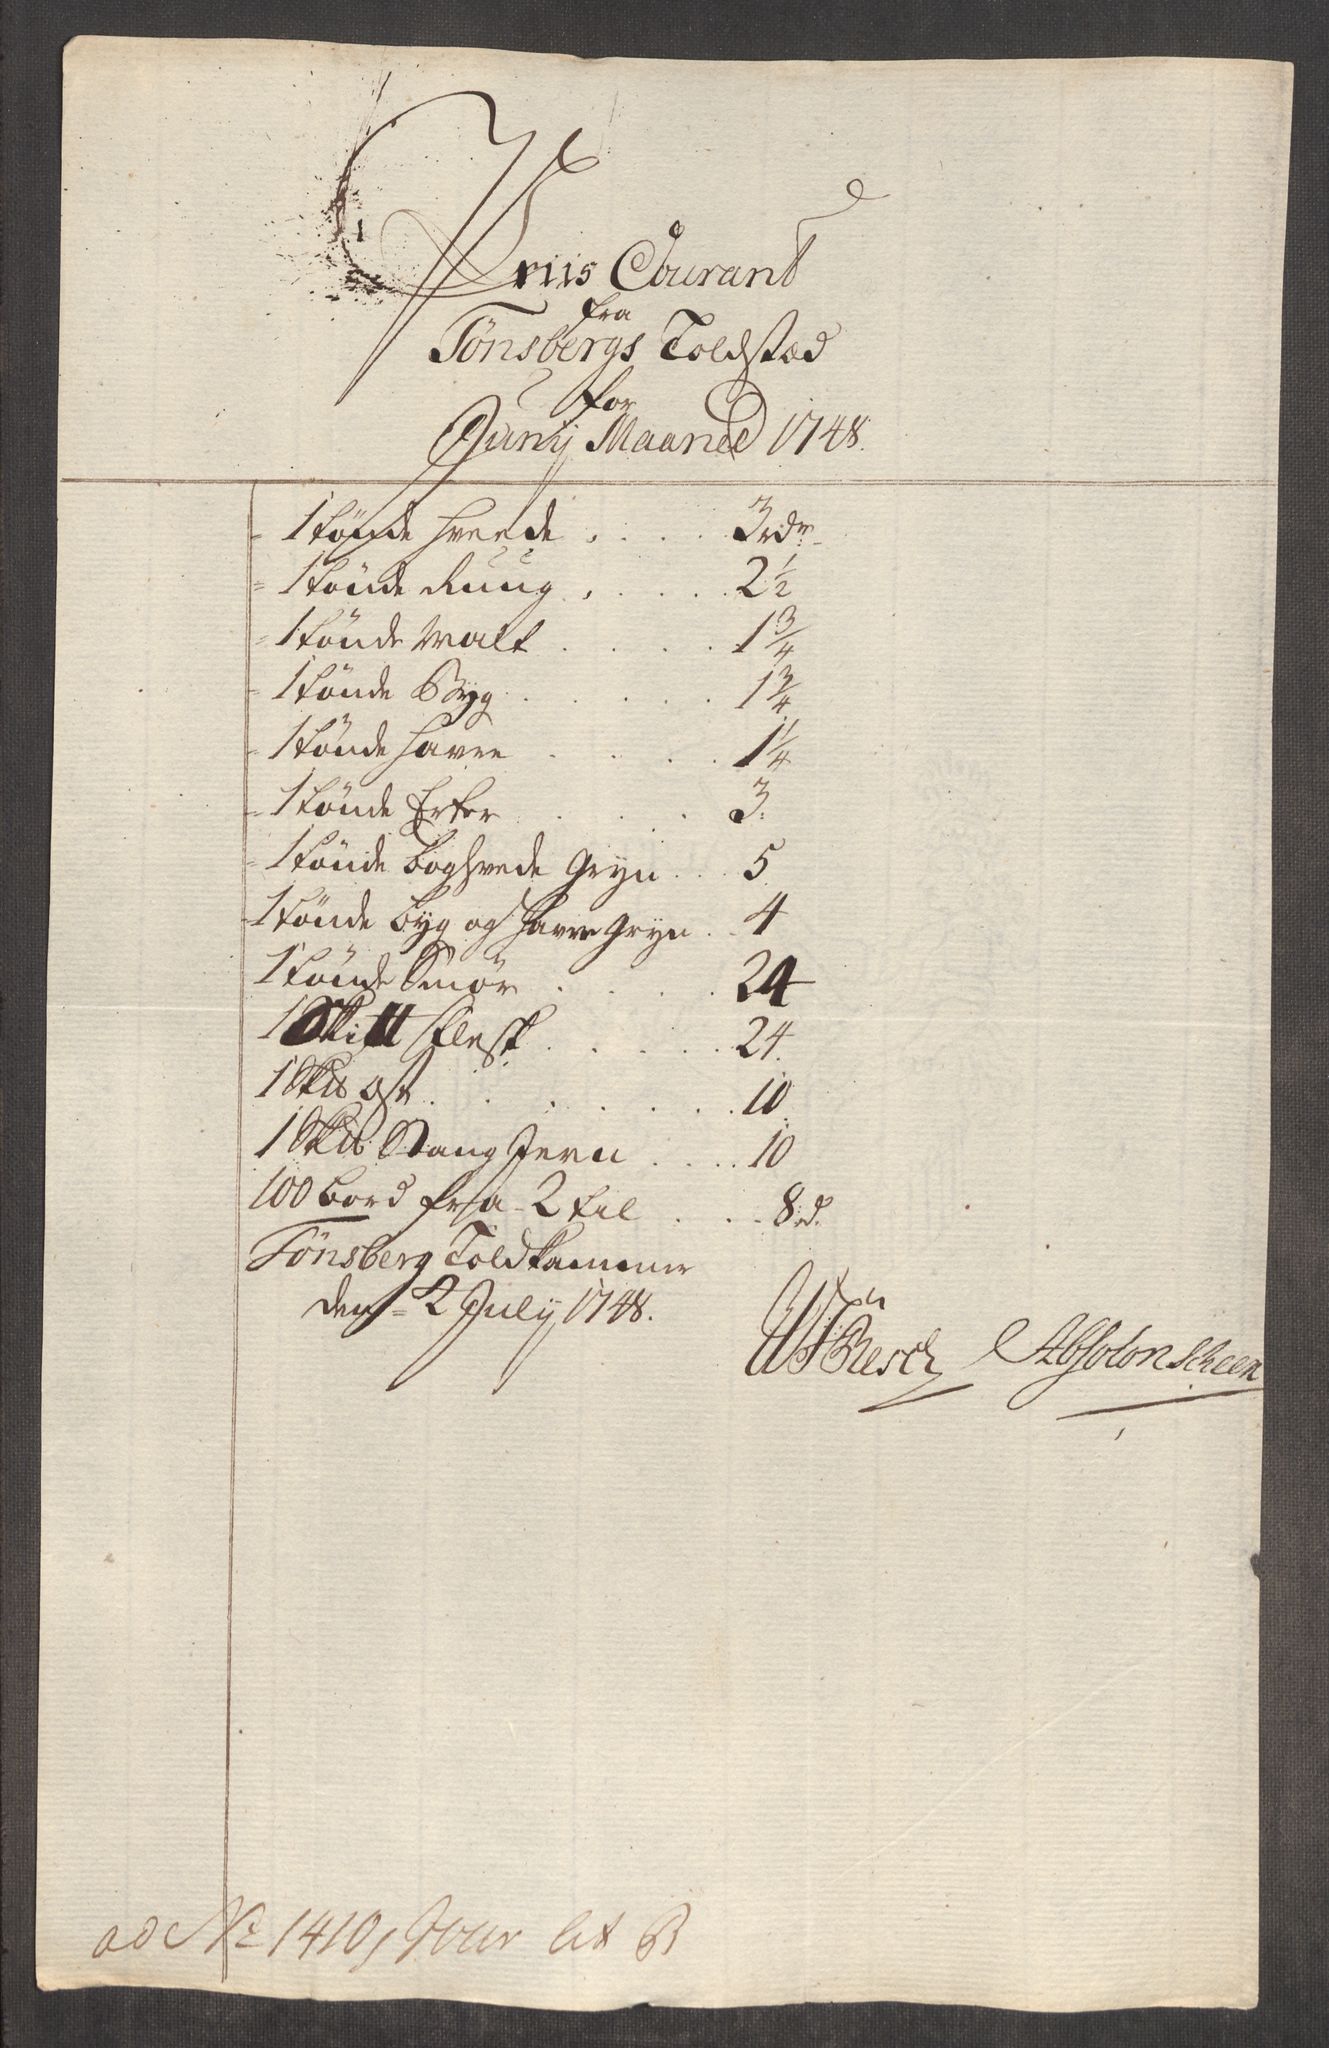 Priis Courant
fra
Tönsbergs Toldstæd
for
Juny Maaned 1748.
1 tönde Hveede . . . . 3 rdr.
1 tönde Ruug . . . . 2 1/2
1 tönde Malt . . . . 1 3/4
1 tönde Byg . . . . 1 3/4
1 tönde Havre . . . . 1 1/4
1 tönde Erter . . . . 3.
1 tönde Boghvede Gryn . . 5
1 tönde Byg og Havre Gryn . 4
1 tönde Smör . . . . 24
1 Flesk . . . . 24.
1 Ost . . . . 10.
1 Stang Jern . . . . 10
100 Bord fra 2 til . . . 8 d.
Tönsberg Toldkammer
den 2 July 1748.
Resch Absolon Scheen
ad No 1410, Jour Lit B